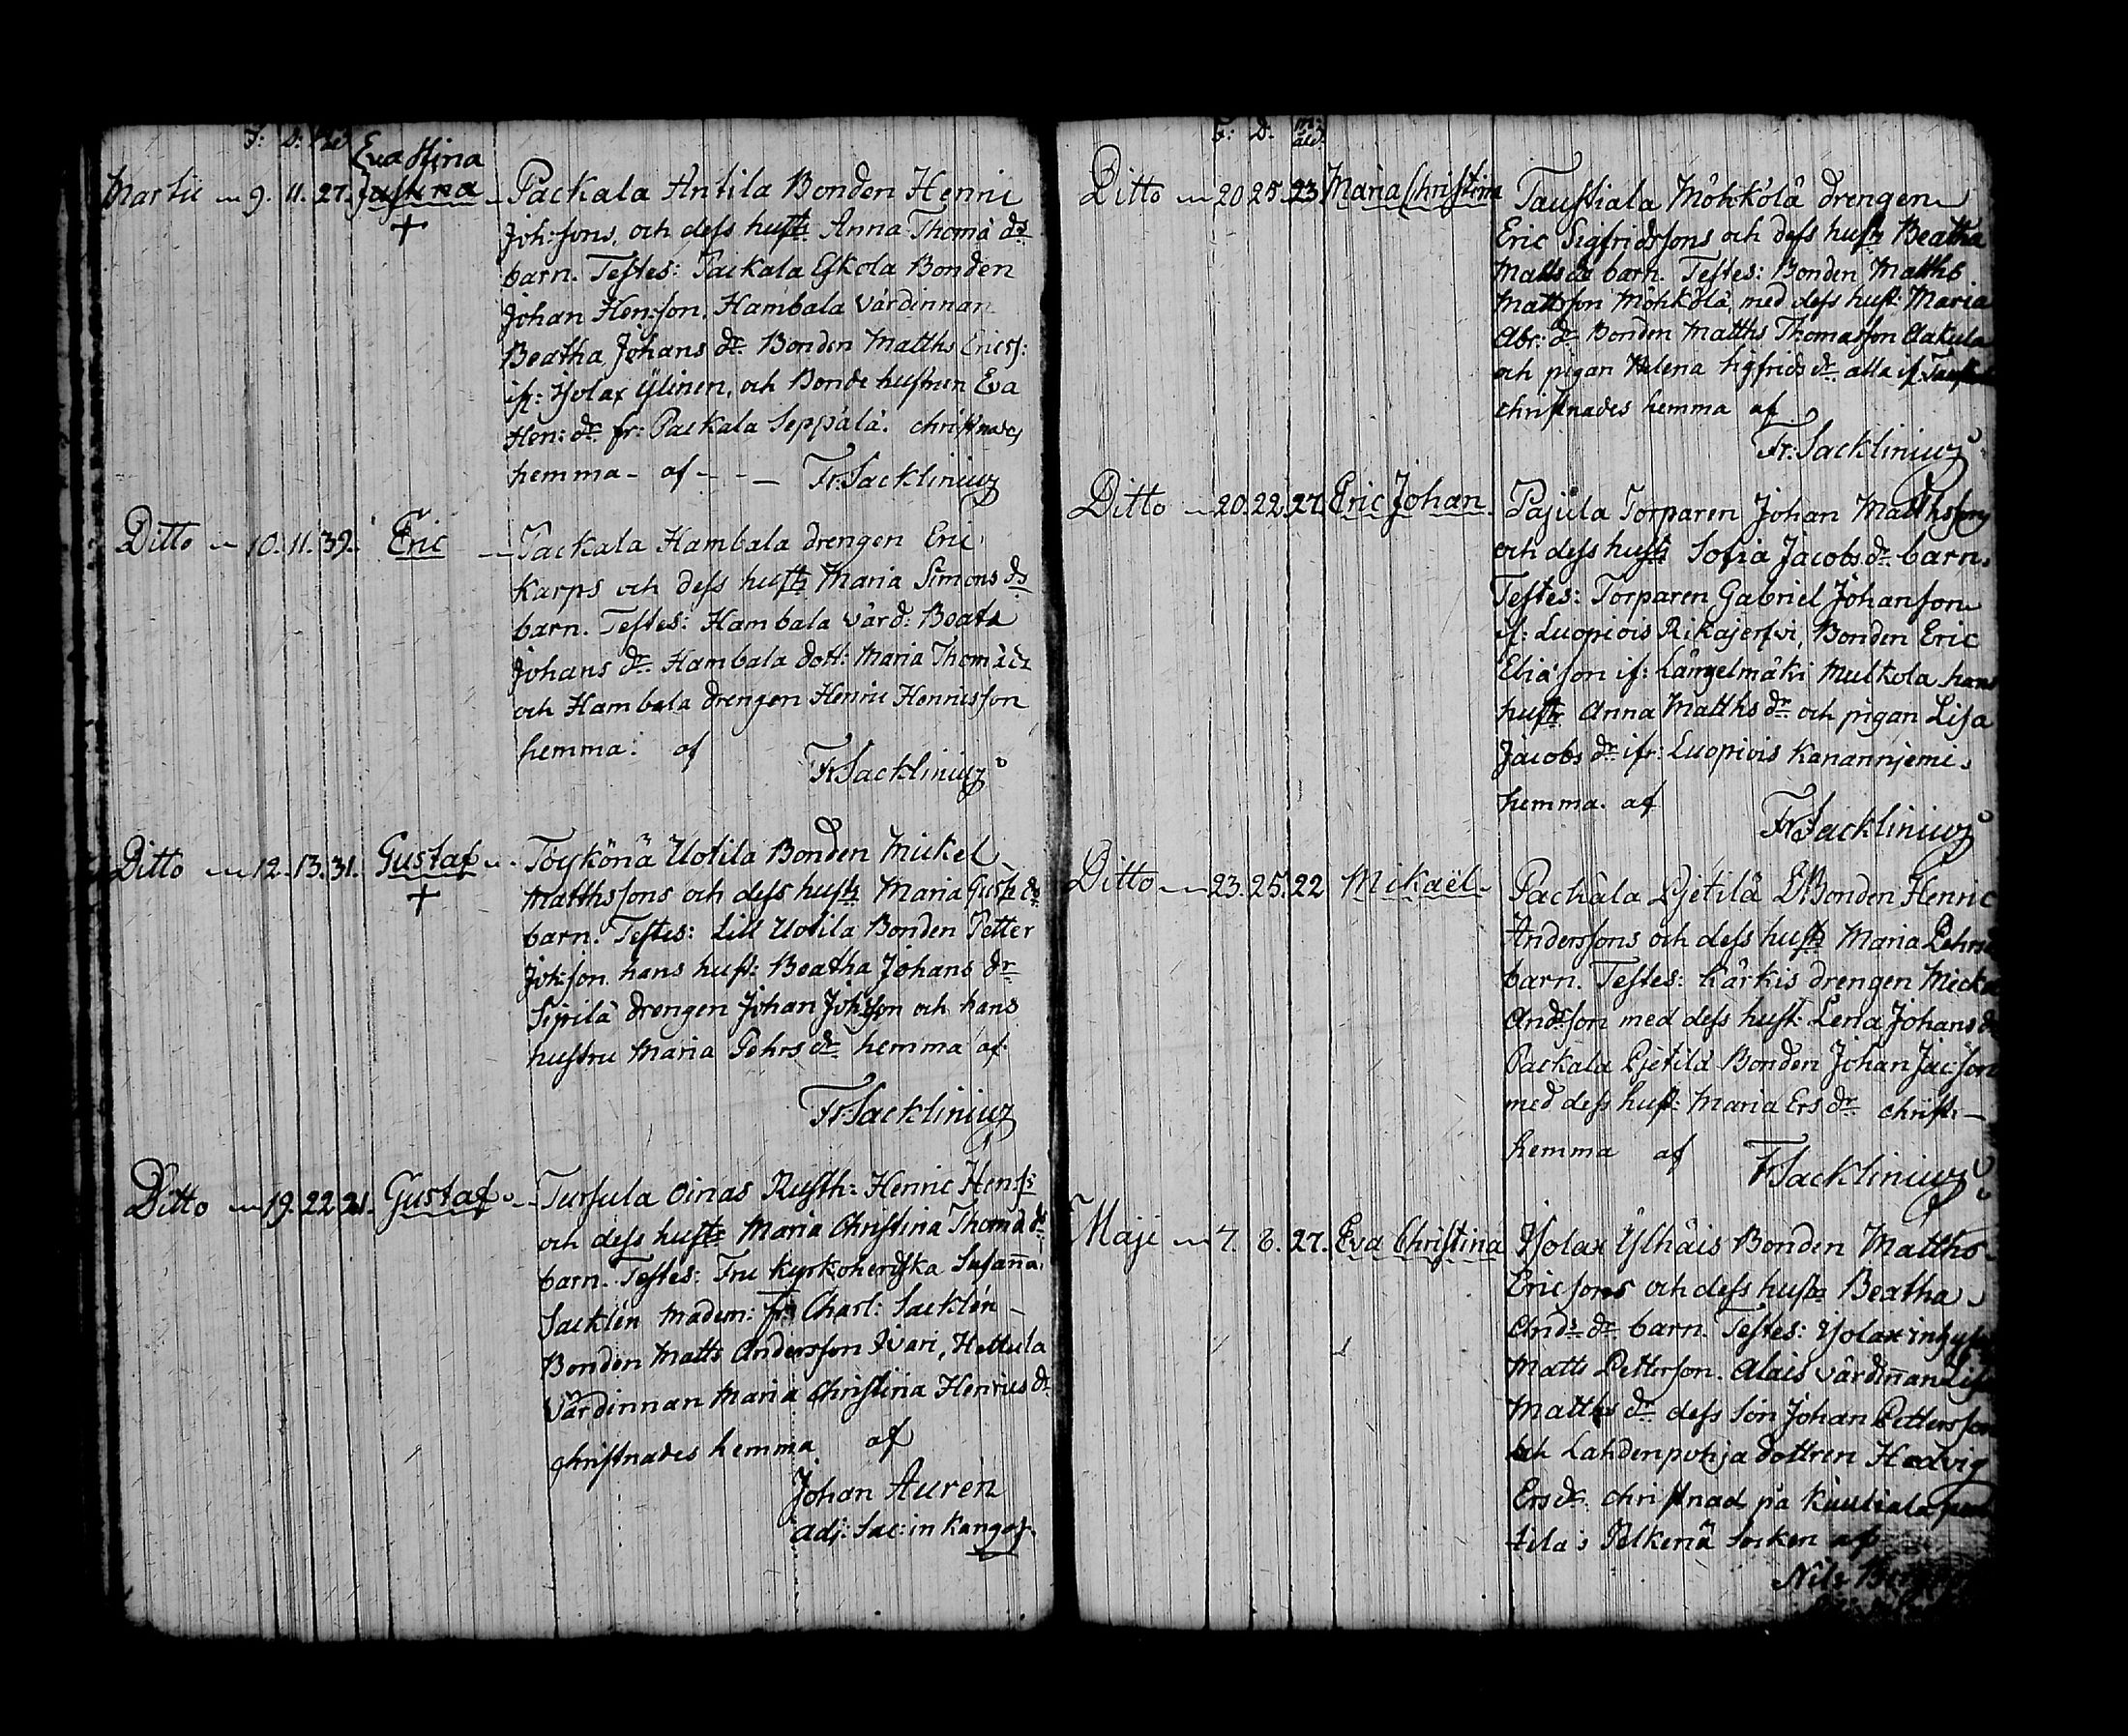 F: D: Ald
Eva Stina
Martii 9. 11. 27. Justina Packala Antila Bonden Henric
Joh:sons, och dess hustr Anna Thomæ dr
barn. Testes: Packala Eskola Bonden
Johan Hen:son, Hambala värdinnan
Beatha Johans dr Bonden Matths Erics:
ifr: Isolax Ylinen, och Bonde hustrun Eva
Hen: dr fr: Packala Seppälä. christnades
hemma - af - - - Fr. Sacklinius
Ditto 10. 11. 39. Eric Packala Hambala drengen Eric
Karps och dess hustr Maria Simons dr
barn. Testes: Hambala värd: Beata
Johans dr Hambala dott: Maria Thom dr
och Hambala drengen Henric Henricsson
hemma: af
Fr Sacklinius
Ditto 12. 13. 31. Gustaf Töykönä Uotila Bonden Mickel
Matthssons och dess hustr Maria Gust: dr
barn. Testes: Lill Uotila Bonden Petter
Joh:son hans hust: Beatha Johans dr
Sipilä drengen Johan Joh:son och hans
hustru Maria Pehrs dr hemma af
Fr. Sacklinius
Ditto 19. 22. 21. Gustaf Tursula Oinas Rusth: Henric Hens:s
och dess hustr Maria Christina Thomæ dr
barn. Testes: Fru kyrkoherdska Susanna
Sacklén Madem: Charl: Sacklén
Bonden Matts Andersson Iivari, Hettula
Värdinnan Maria Christina Henrics dr
christnades hemma af
Johan Auren
adj: Sac: in Kangas.
F: D: M: ald:
Ditto 20 25. 23 Maria Christina Taustiala Möhkölä drengen
Eric Sigfridssons och dess hustr Beatha
Matts dr barn. Testes: Bonden Matths
Mattsson Möhkölä, med dess hust: Maria
Abr: dr Bonden Matths Thomasson Aakula
och pigan Helena Sigfrids dr alla if:
christnades hemma af
Fr. Sacklinius
Ditto 20. 22. 27. Eric Johan Pajula Torparen Johan Matthssons
och dess hustr Sofia Jacobs dr barn.
Testes: Torparen Gabriel Johansson
if: Luopiois Rikajerfvi, Bonden Eric
Eliæson if: Längelmäki Mulkola hans
hustr Anna Matths dr och pigan Lisa
Jacobs dr ifr: Luopiois Kanannjemi.
hemma. af
Fr Sacklinius
Ditto 23. 25. 22 Mikaël Packala Pjetilä Bonden Henric
Anderssons och dess hustr Maria
barn. Testes: Kärkis drengen
And:son med dess hust Lena Johans dr
Packala Pjetilä Bonden Johan Jac:son
med dess hust: Maria Ers dr christ:
hemma af Fr Sacklinius
Maji 7. 8. 27. Eva Christina Isolax Ylhäis Bonden Matths
Ericsons och dess hustr Beatha
And:s dr barn. Testes: Isolax
Matts Pettersson. Alais värdinnan
Matths dr dess son Johan Pettersson
och Lahdenpohja dottren Hedvig
Ers dr. christnad på Kuuliala
tila i Pelkenä Socken af
Nils